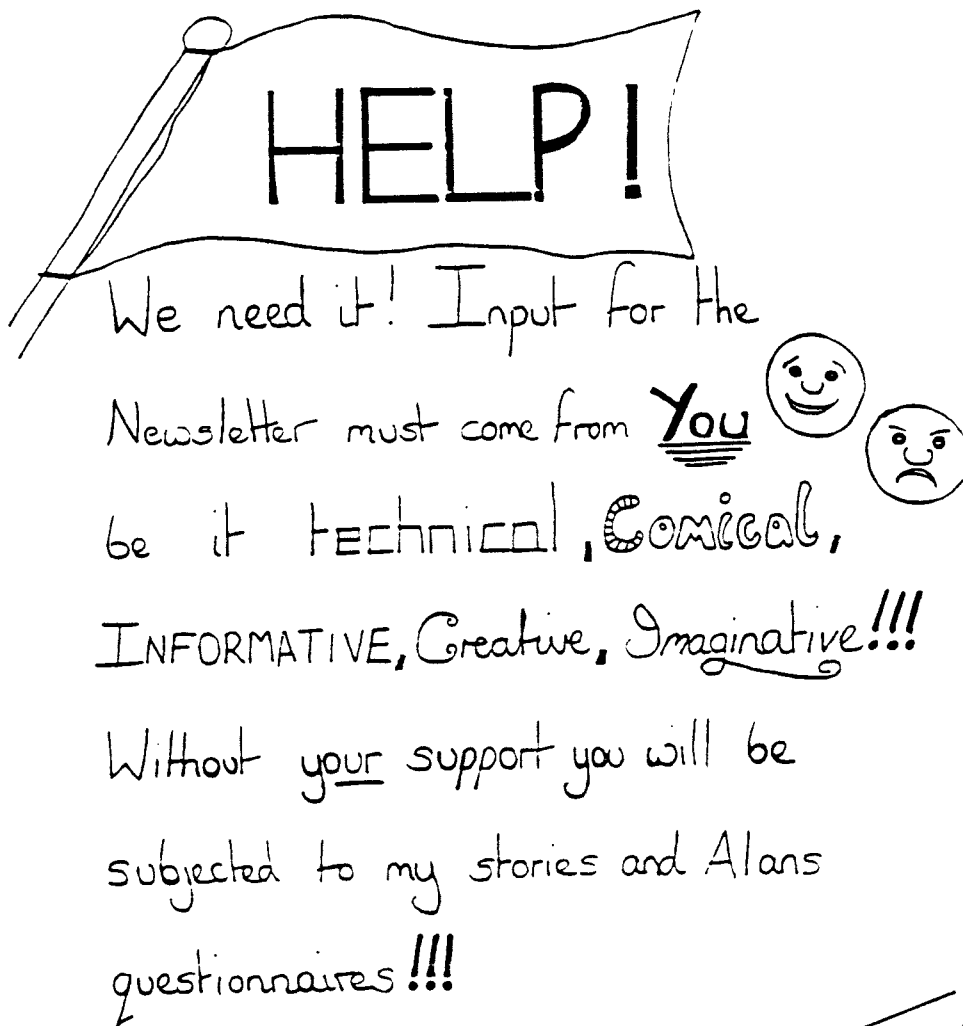 HELP!
We need it! Input for the
Newsletter must come from You
be it technical, Comical,
INFORMATIVE, Creative, Imaginative!!!
Without your support you will be
subjected to my stories and Alans
questionnaires!!!